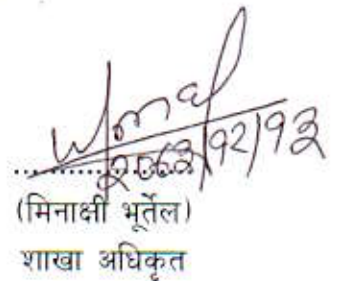 २०८२/१२/१३
(मिनाक्षी भूर्तेल)
शाखा अधिकृत